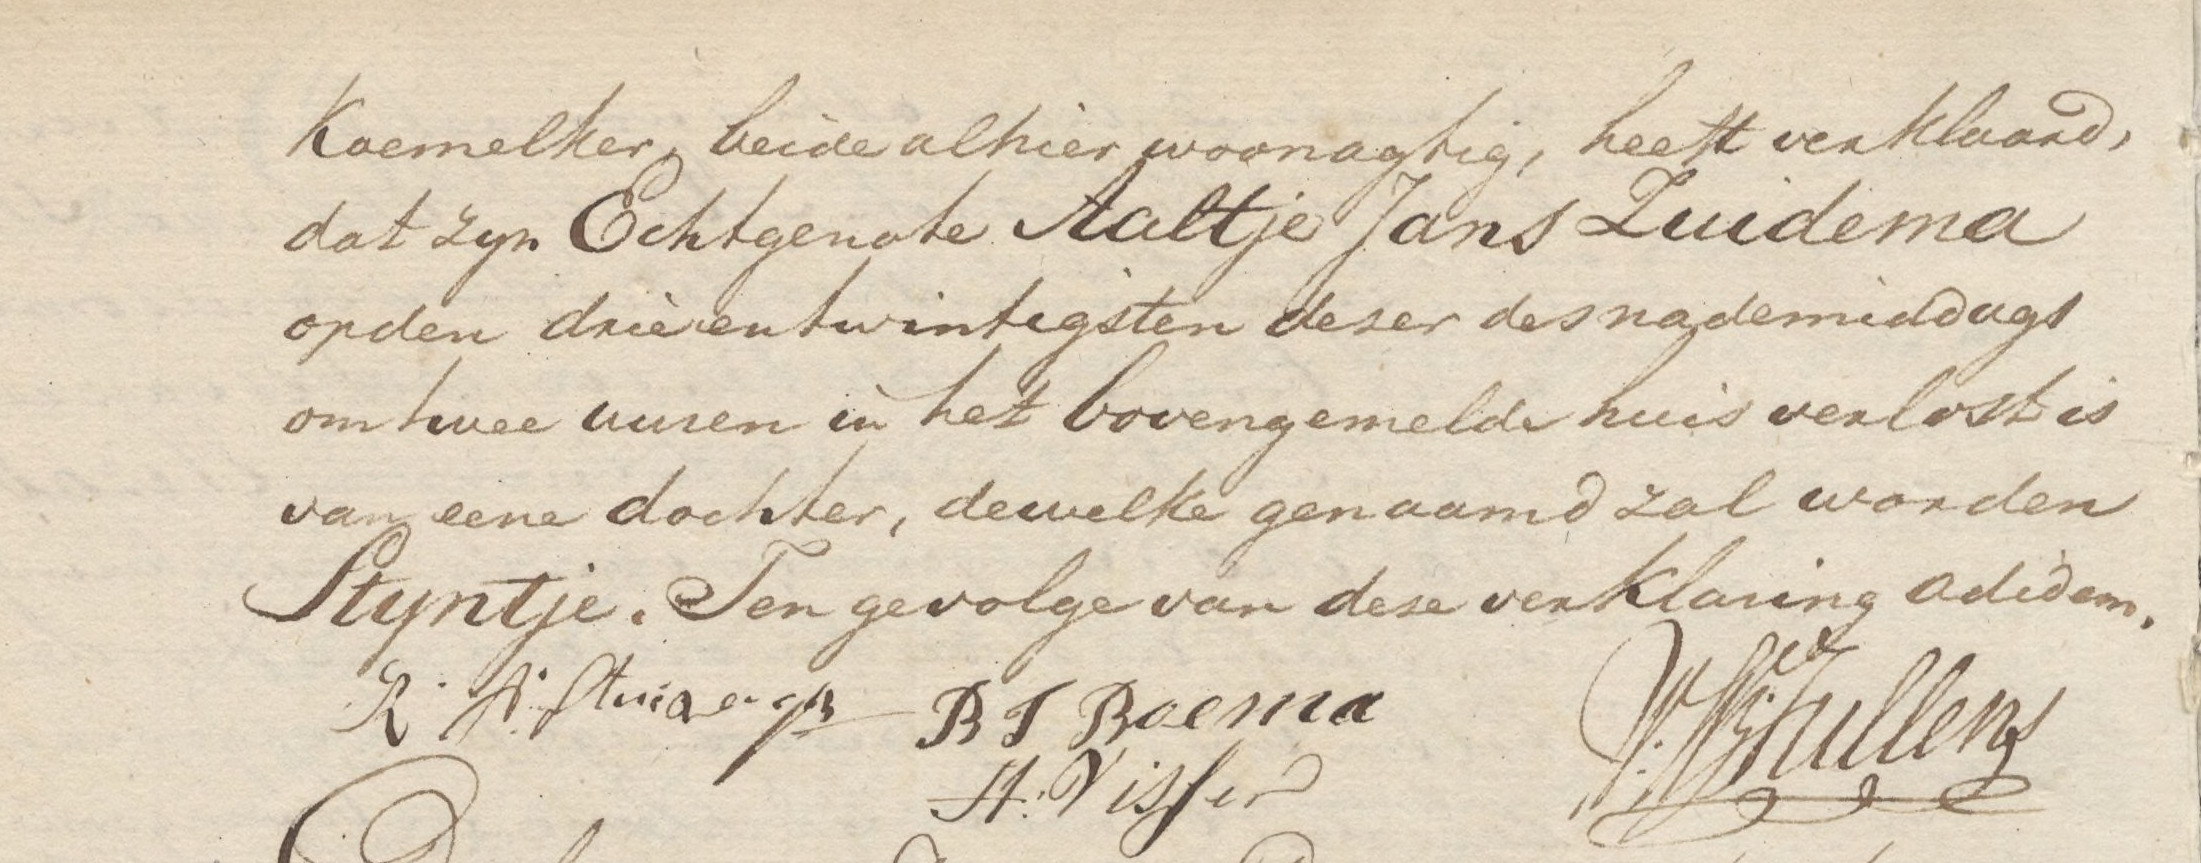 Koemelker, beide alhier woonagtig, heeft verklaard,
dat zyn Echtgenote Aaltje Jans Zuidema
op den drie en twintigsten dezer des nademiddags
om twee uuren in het bovengemelde huis verlost is
van eene dochter, dewelke genaamd zal worden
Styntje. Ten gevolge van deze verklaring adidem.
B T Boema
H: Visser